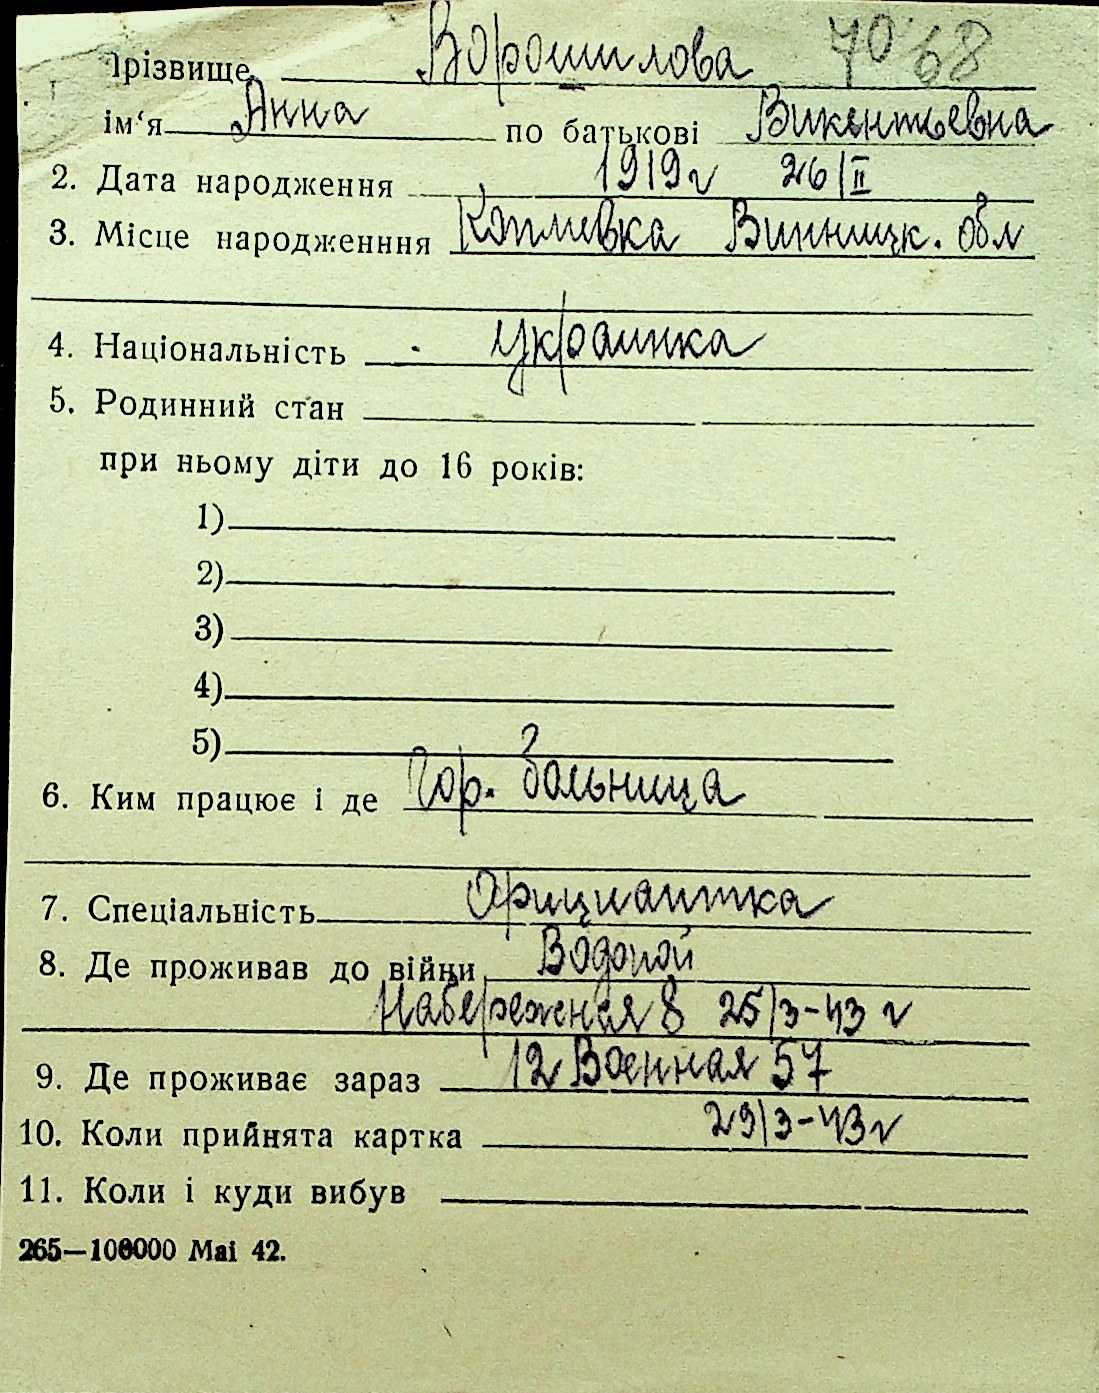 Прізвище Ворошилова 7068
ім'я Анна по батькові Викентьевна
2. Дата народження 1919 г 26/II
3. Місце народженння Винницк. обл
4. Національність украинка
5. Родинний стан
при ньому діти до 16 років:
1)
2)
3)
4)
5)
6. Ким працює і де Гор. больница
7. Спеціальність Официантка
8. Де проживав до війни Водопой
Набережная 8 25/3-43 г
9. Де проживає зараз 12 Военная 57
10. Коли прийнята картка 29/3-43 г
11. Коли і куди вибув
265—100000 Mai 42.